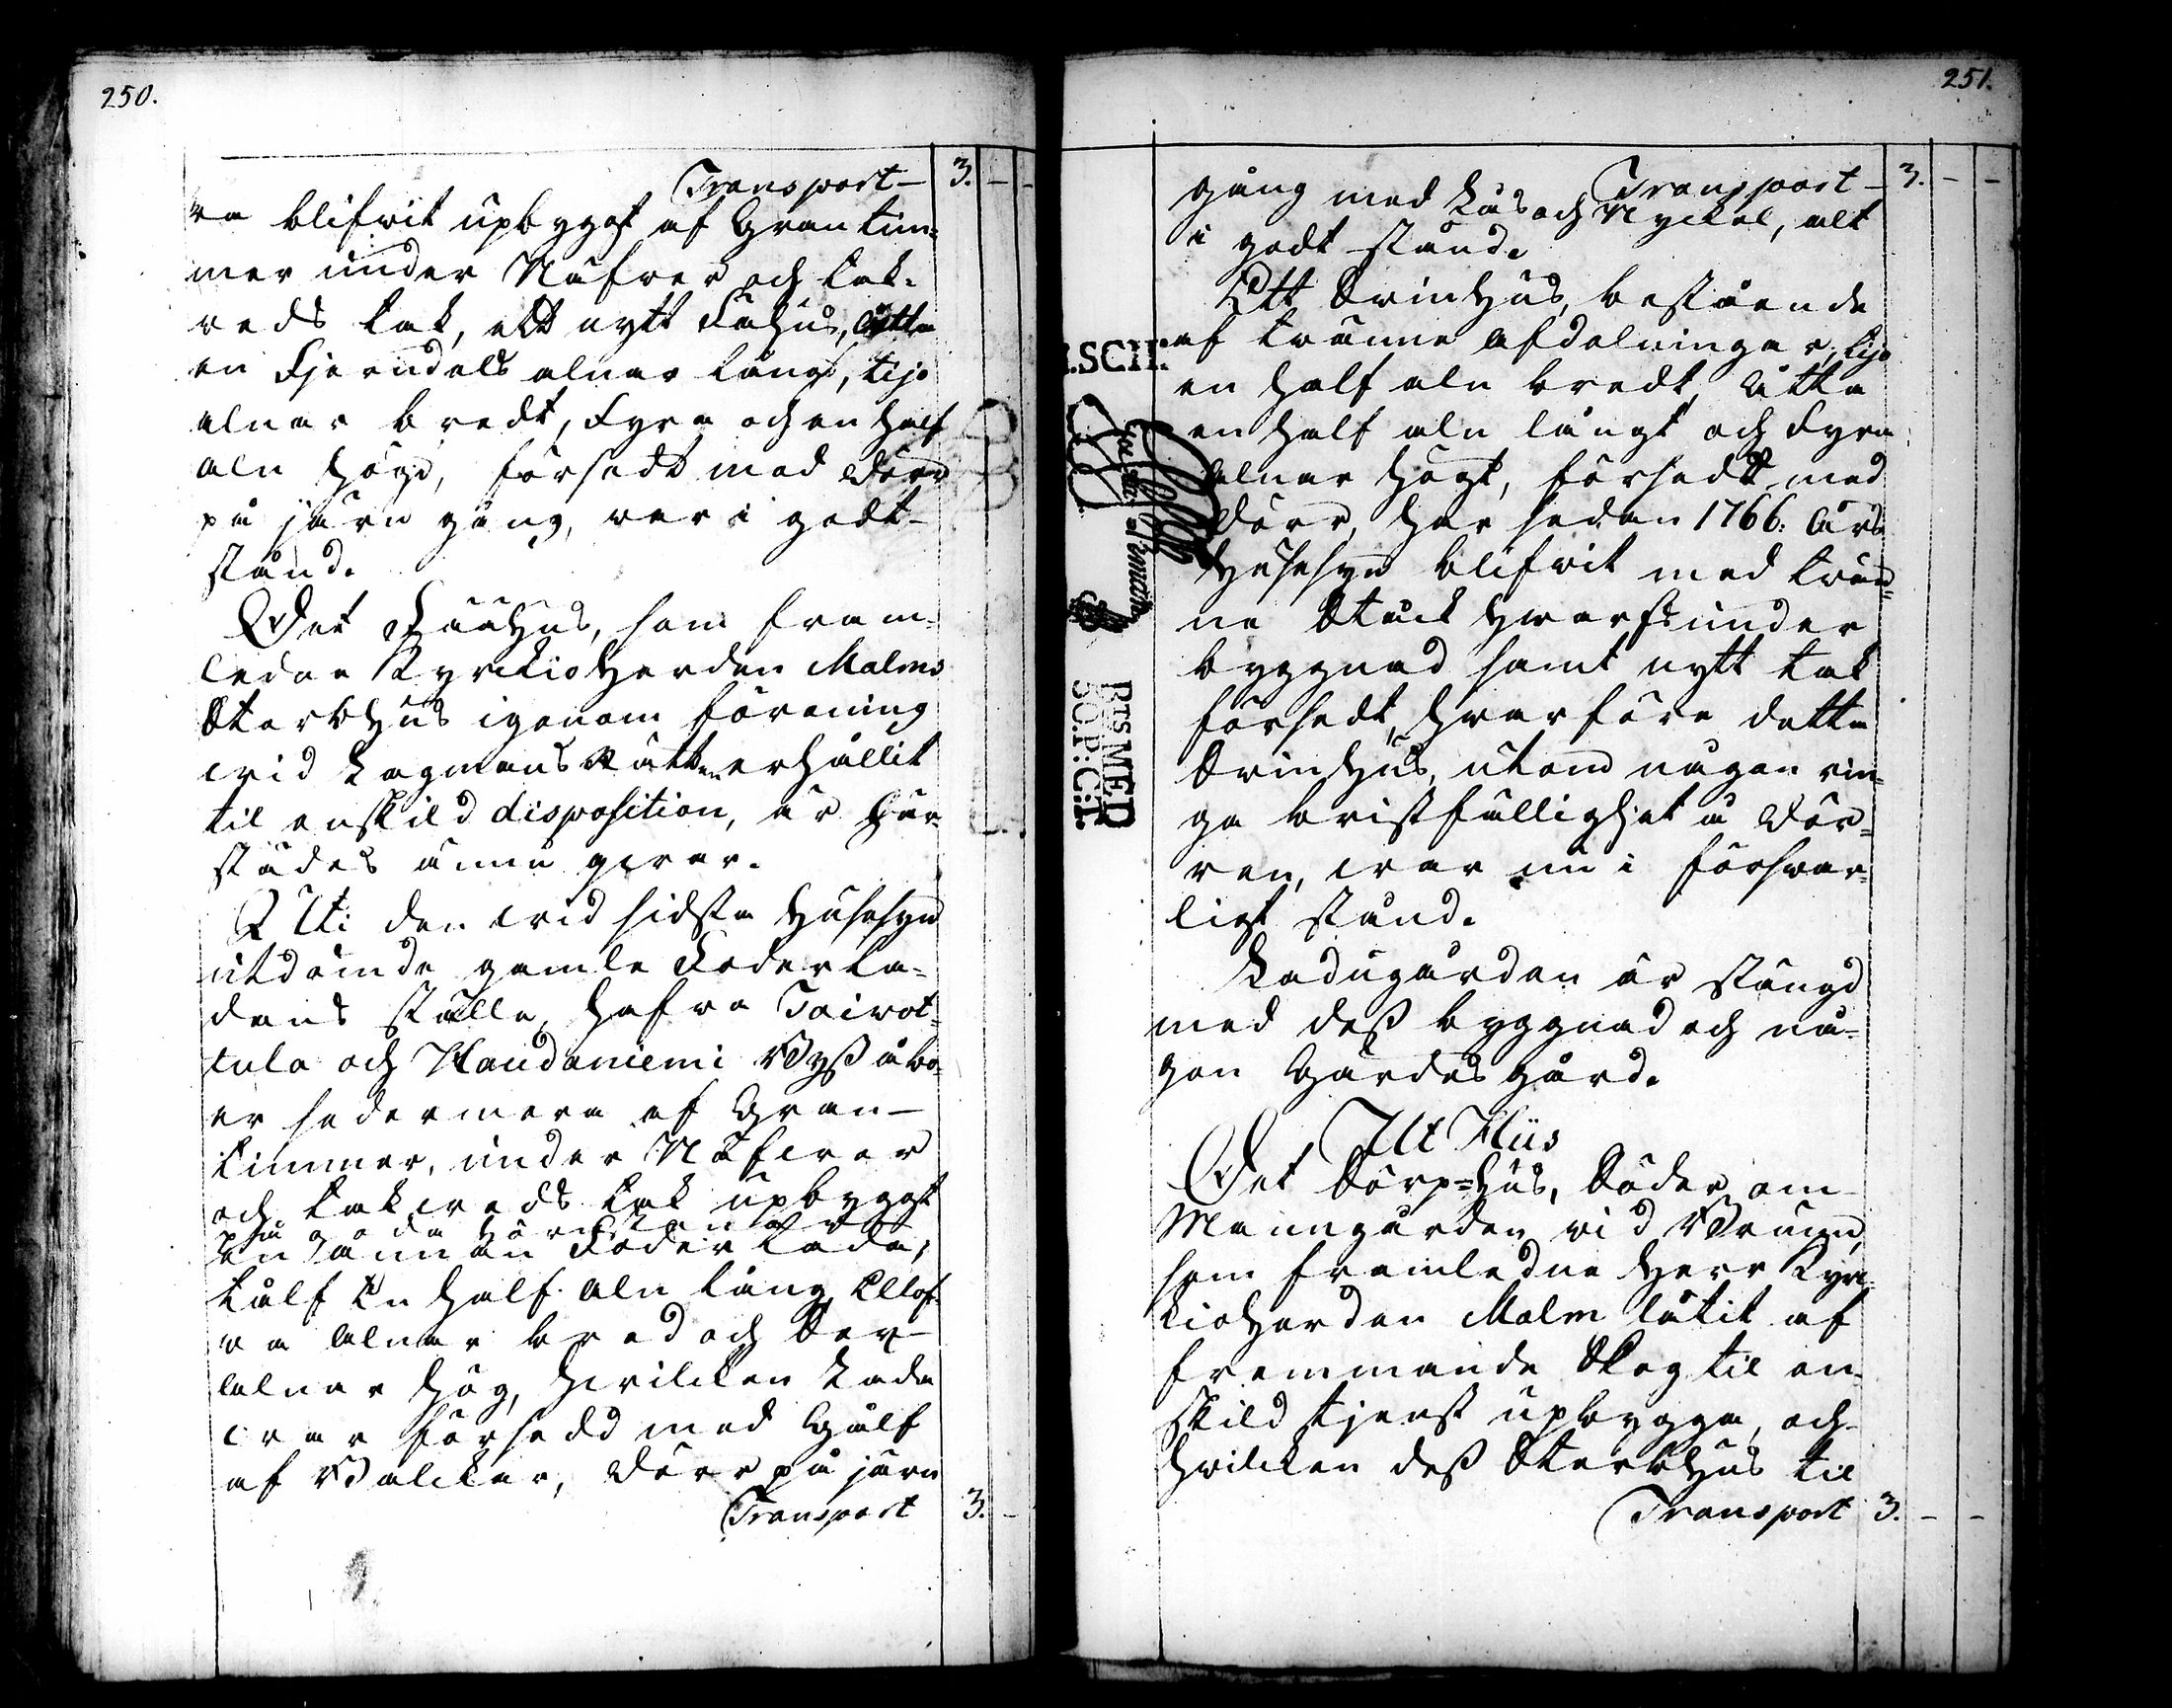 250.
Transport — 3. — —
ra blifwit upbygt af Gran tim=
mer under Näfwer och tak=
weds tak, ett nytt Fähus, Åtta
en Fjerndels alnar långt, tijo
alnar bredt, Fyra och en half
aln högt, försedt med Dörr
på järn gång, war i godt
stånd.
Det Fäähus, som fram=
ledne Kyrckioherden Malms
Sterbhus igenom förening
wid Lagmans Rätten erhållit
til enskild disposition, är här=
städes ännu qwar.
Uti den wid sidsta Husesyn
utdömde gamle Foderla=
dans ställe, hafwa Toiwot=
tula och Haudaniemi Byss åbo=
er sedermera af Gran=
timmer, under Näfwer
och takweds tak upbygt
på goda Hörnstenar
en annan Foder Lada,
tålf en half aln lång, Ellof=
wa alnar bred och Sex
alnar hög, hwilcken Lada
war försedd med Gålf
af Balckar, Dörr på järn
Transport 3. —
251.
Transport — 3. — —
gång med Lås och Nyckel, alt
i godt stånd.
Ett Swinhus, bestående
af twänne afdelningar, tijo
en half aln bredt, Åtta
en half aln långt och Fyra
alnar högt, försedt med
Dörr, har sedan 1766: Års
Husesyn blifwit med twän=
ne Stäck hwarfs under
byggnad samt nytt tak
försedt, hwarföre detta
Swinhus, utom någon rin=
ga bristfällighet å Dör=
ren, war nu i förswar=
ligt stånd.
Ladugården är stängd
med dess byggnad och nå=
gon Gärdesgård.
Ut Hus
Det Sörp=hus, Söder om
Mangården wid Brunn,
som framledne Herr Kyrc=
kioherden Malm låtit af
fremmande Skog til en=
skild tjenst upbygga, och
hwilcken dess Sterbhus til
Transport 3. — —